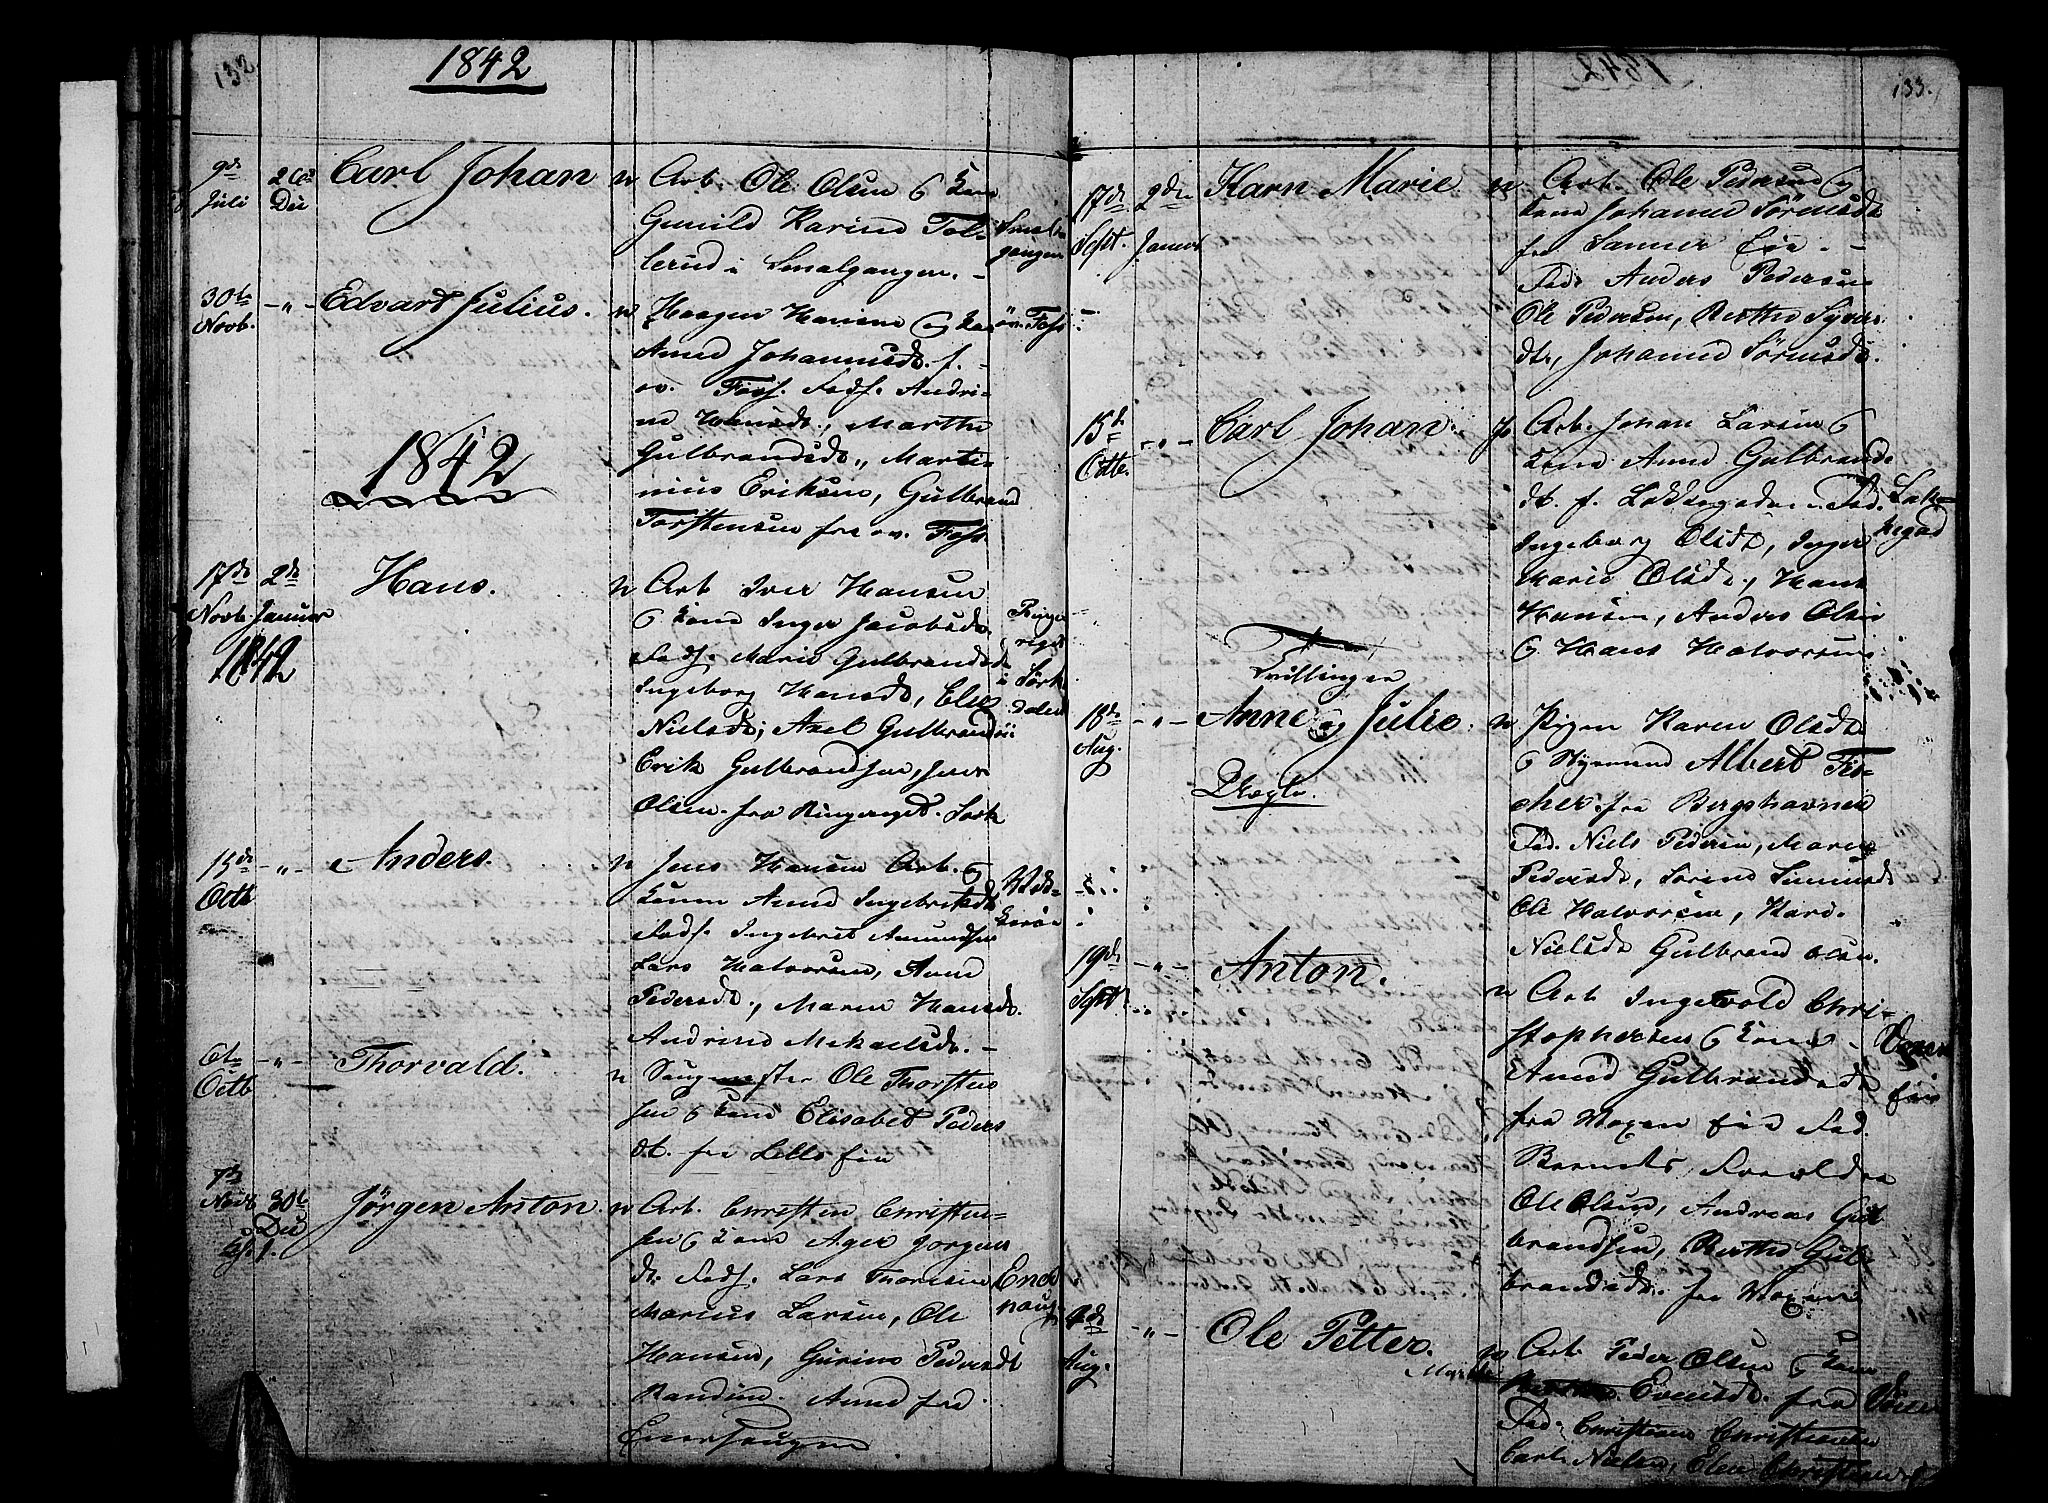 132
1842
9de Juli
2 Co. Dei
Carl Johan
Arb. Ole Olsen &
Gunild Karine Tol-
lerud i Smalgangen.
Smal-
gangen
30te Novb.
Edvart Julius.
Haagen Hansen og
Anne Johannesdt. f.
ov. Foss. Fadf. Andri-
ne Hansdt., Marthe
Gulbrandsdt., Marti-
nius Eriksen, Gulbrand
Torstensen fra ov. Foss.
ov. Foss
1842
17de Novb.
2de Januar
1842
Hans.
Arb Iver Hansen
& Kone Inger Jacobsdt.
Fadf. Marie Gulbrandsdt
Ingeborg Hansdt, Else
Nielsdt, Axel Gulbrandsen
Erik Gulbrandsen, Jens
Olsen fra Ringeriget. Sørk
Ringe
riget
i Sørk
dalen
15de Octb
Anders.
Jens Hansen Arb. og
Konen Anne Ingebretsdt
Fadf. Ingebret Amundsen
Lars Halvorsen, Anne
Pedersdt., Maren Hansdt.
Andrine Mikkelsdt.
6te Octb
Thorvald.
Saugmester Ole Thorsten
sen & Kone Elisabet Peders
dt. fra Lille
7de Novb
30te Dec
Jørgen Anton
Arb. Christen Christen-
sen & Kone Jorgens
dt. Fadf. Lars Thoresen
Marius Larsen, Ole
Hansen, Gurine Pedersdt
Randine Anne fra
Enersaugen
Ener
saug
133.
17de Sept.
2den Januar
Karn Marie
Arb. Ole Pedersen og
Kone Johanne Sörensdt
fra Sanner Eie.
Fad. Anders Pedersen
Ole Pedersen, Berthe Syvers
dtr, Johanne Sörensdt.
15de Octb.
Carl Johan
Arb. Johan Larsen &
Kone Anne Gulbrands
dt. f. Lakkegaden. Fad.
Ingeborg Olsdt, Inger
Marie Olsdt., Hans
Hansen, Anders Olsen
& Hans Halvorsen
Lak-
kegad
Tvillinger
18de Aug.
Anne og Julie
Uægte.
Pigen Karen Olsdt
& Albert Fis-
cher fra Bergshavnen
Fad. Niels Pedersen, Maren
Pedersdt, Sorine Simensdt
Ole Halvorsen, Kari
Nielsdt Gulbrand Olsen.
19de Sept.
Anton.
Arb Ingebvold Chri-
stophersen & Kone
Anne Gulbrandsdt
fra Voxen Eie Fad.
Barnets Foreldre
Ole Olsen, Andreas Gul
brandsen, Berthe Gul-
brandsdt. fra Voxen
Voxen
Eie
4de Aug.
Ole Petter.
Arb Peder Olsen & Kone
Marthe Evensdt. fra Voxen
Fad. Christian Christensen
Carl Nielsen, Elen Christens